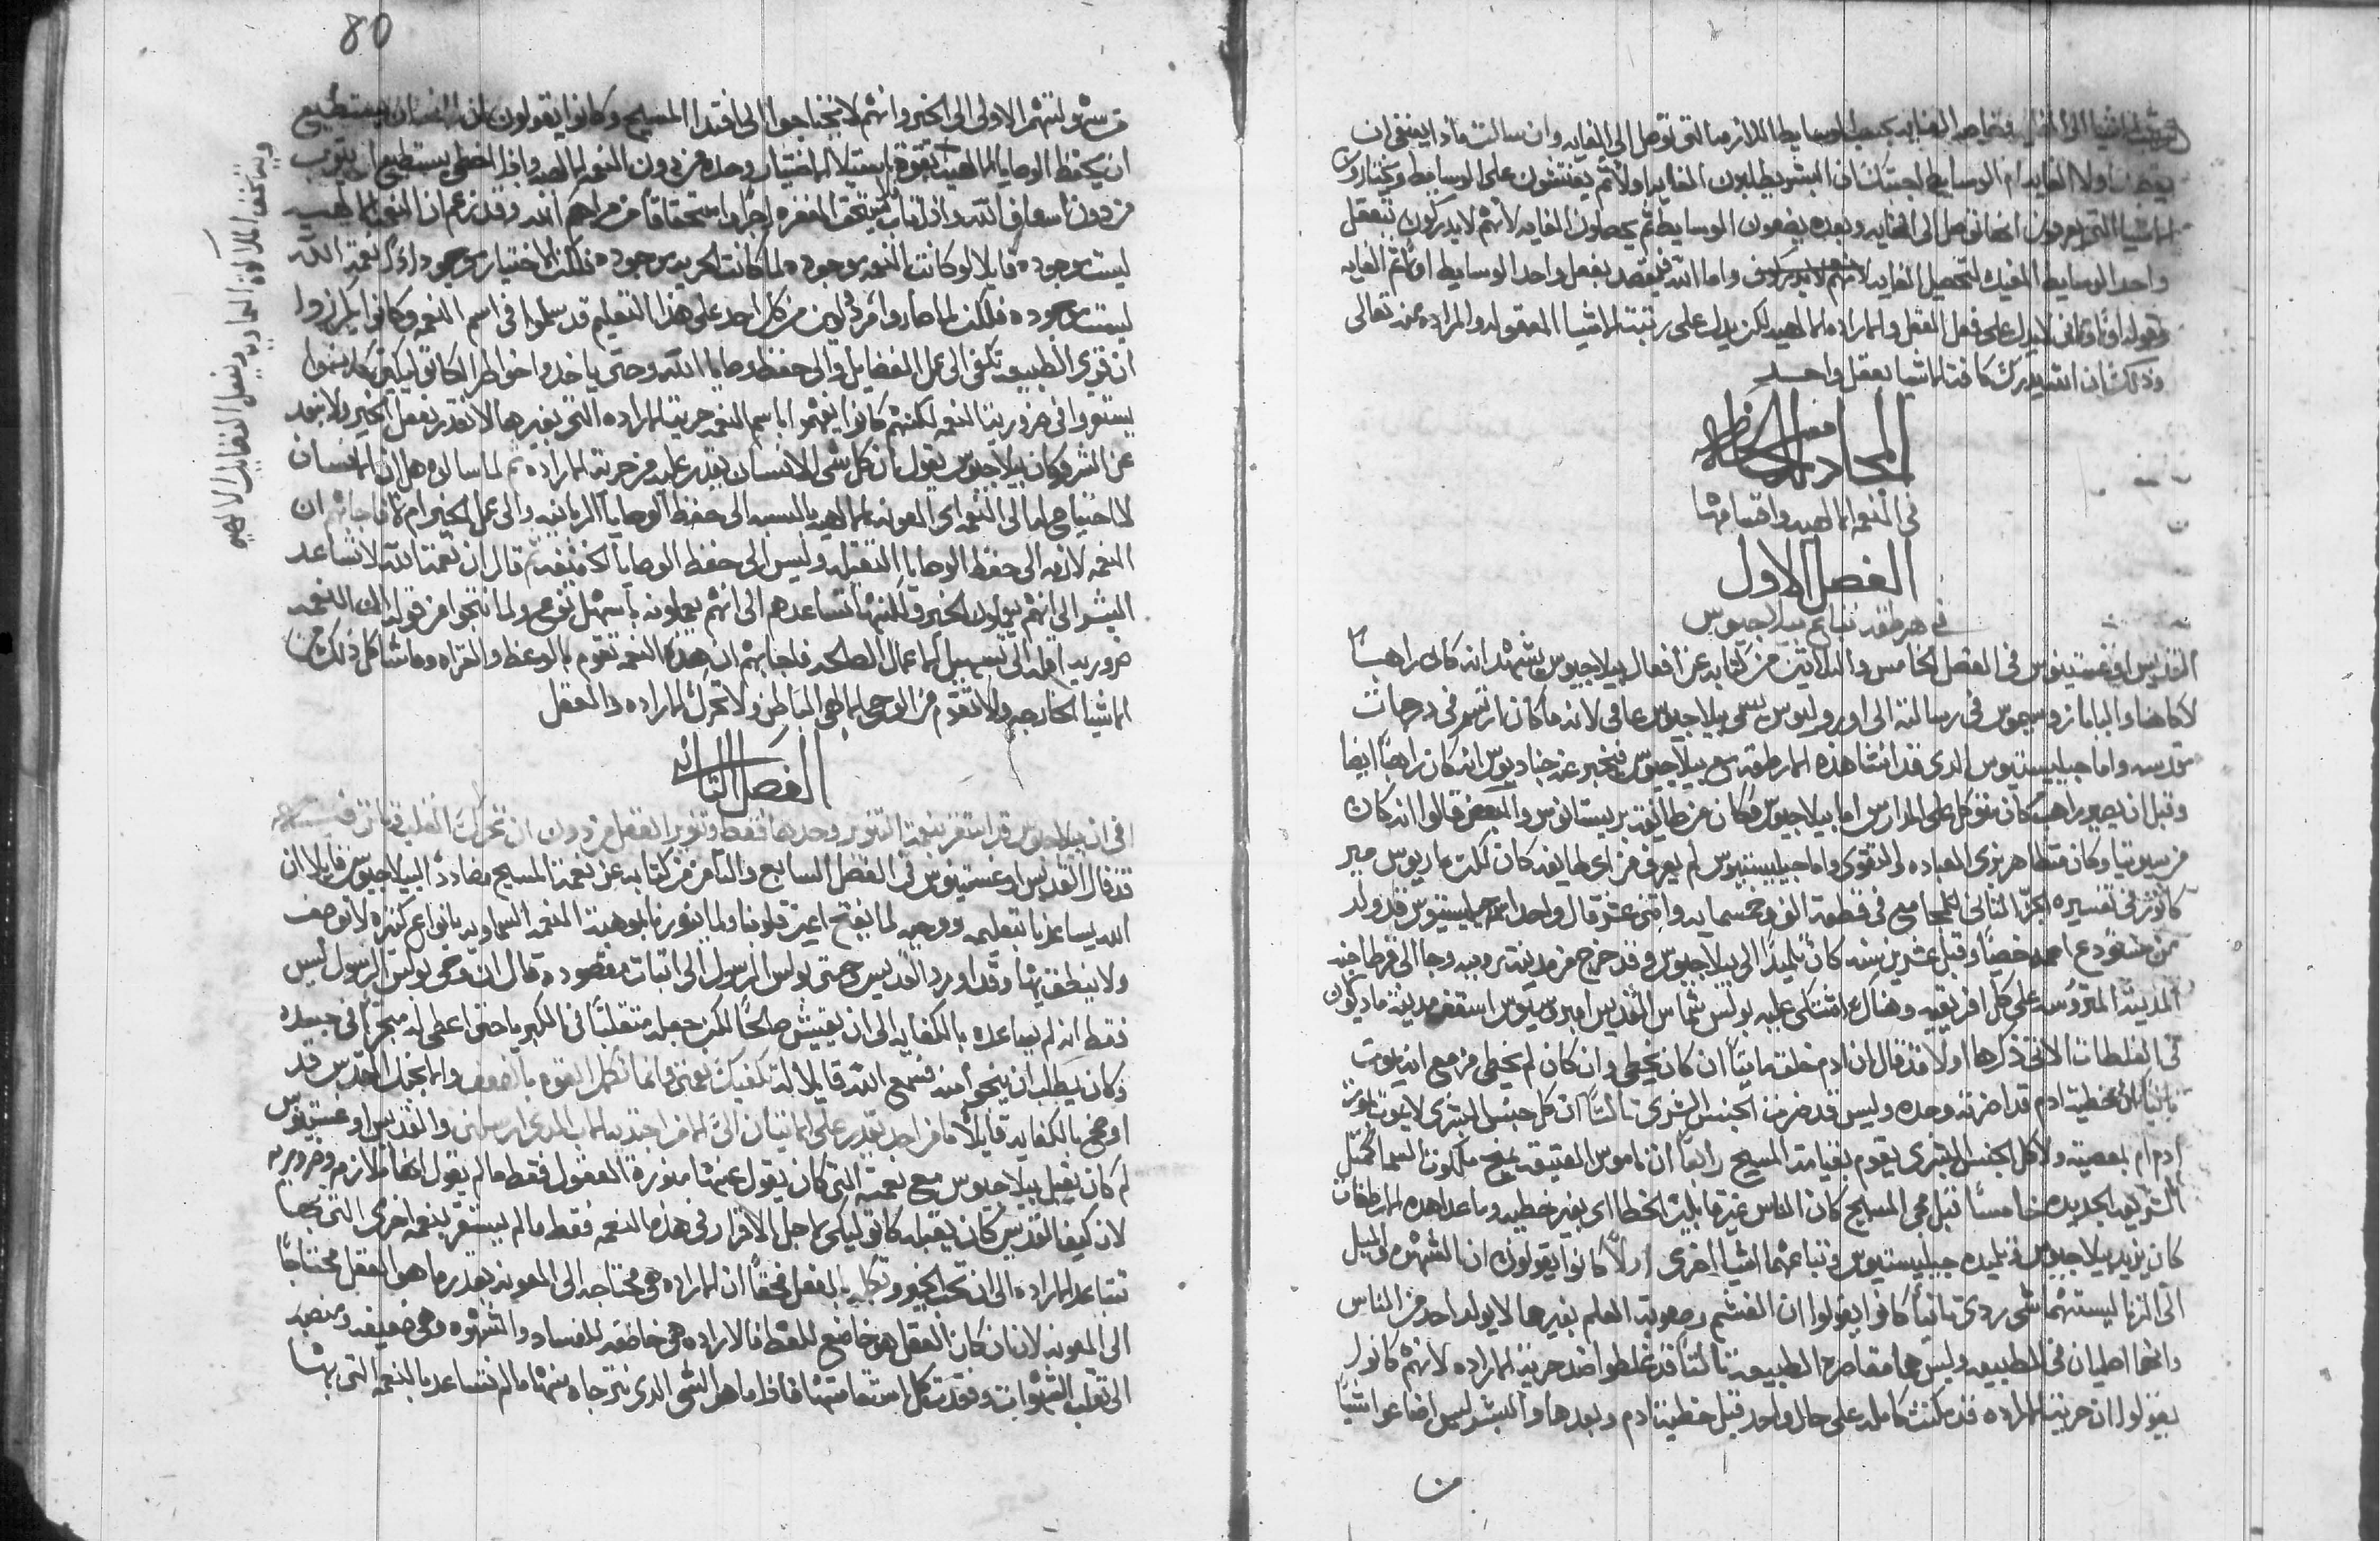 يقصد اولا الغايه ام الوسايط اجبتك ان البشر يطلبون الغايه اولا ثم يفتشون على الوسايط ويختاروا
الاشيا التي يعرفون انها توصل الى الغايه وبعده يضعون الوسايط ثم يحصلون الغايه لانهم لا يدركون بتعقل
واحد الوسايط المفيده لتحصيل الغايه واما الله فيقصد بفعل واحد الوسايط والغايه
وذلك ان الله يدرك كافة الاشيا بعقل واحد
المجادله الخامسه
في النعمه الالهيه واقسامها
الفصل الاول
في هرطقة تباع بيلاجيوس
القديس اوغستينوس في الفصل الخامس والثلاثين من كتابه عن افعال بيلاجيوس يشهد انه كان راهبا
لا كاهنا والبابا زوسيموس في رسالته الى اوريليوس يسمي بيلاجيوس عامي لانه ما كان ارتسم في درجات
مقدسه واما جيليستيوس الذي قد انشا هذه الهرطقه مع بيلاجيوس فيخبر عنه جناديوس انه كان راهبا ايضا
وقبل ان يصير راهب كان متوكل على المدارس اما بيلاجيوس فكان من طايفة بريستانوس والبعض قالوا انه كان
من سيوتيا وكان متظاهر بزي العباده والتقوى واما جيليستيوس لم يعرف من اي طايفه كان لكن ماريوس مير
كاتور في تفسيره
وقبل عشرين سنه كان تلميذا الى بيلاجيوس وقد خرج من مدينة روميه وجا الى قرطاجنه
المدينه المتروسه على كل افريقيه وهناك اشتكى عليه بولس شماس القديس امبروسيوس اسقف مدينة ماديولان
في الغلطات الاتي ذكرها اولا قد قال ان ادم خلق مايتا ان كان يخطي وان كان لم يخطي فمزمع انه يموت
ثانيا ان خطية ادم قد اضرته وحده وليس قد ضرت الجنس البشري ثالثا ان كل جنس البشري لا يموت بموت
ادم ام بمعصيته ولا كل الجنس البشري يقوم بقيامة المسيح رابعا ان ناموس العتيقه يمنح ملكوت السما كمثل
الشريعه الجديده خامسا قبل مجي المسيح كان الناس غير قابلين الخطا اي بغير خطيه وما عدا هذه الهرطقات
كان يزيد بيلاجيوس وتلميذه جيليستيوس وتباعهما اشيا اخرى اولا كانوا يقولون ان الشهوه والميل
الى الزنا ليستهما شي ردي ثانيا كانوا يقولوا ان الغشم وصعوبة العلم بغيرها لا يولد احد من الناس
وانهما اصليان في الطبيعه وليس هما مقاصرة الطبيعه ثالثا قد غلطوا ضد حرية الاراده لانهم كانوا
يقولوا ان حرية الاراده قد مكثت كامله على حال واحد قبل خطية ادم وبعدها والبشر ليس اضاعوا شيا
من
80
من سهولتهم الاولى الى الخير وانهم لا يحتاجوا الى افتدا المسيح وكانوا يقولون ان الانسان يستطيع
ان يحفظ الوصايا الالهيه بقوة استيلا الاختيار وحده من دون النعمه الالهيه واذا اخطى يستطيع ان يتوب
من دون اسعاف الله واذا تاب يستحق المغفره اجرا واستحقاقا من مراحم الله وقد زعم ان النعمه الالهيه
ليست موجوده قايلا لو كانت النعمه موجوده لما كانت الحريه موجوده فلكن الاختيار موجود اذا نعمة الله
ليست موجوده فلكن لما صاروا مرذولين من كل احد على هذا التعليم قد سلموا في اسم النعمه وكانوا يكرزوا
ان قوى الطبيعه تكفي الى عمل الفضايل والى حفظ وصايا الله وحتى ياخدوا خواطر الكاثوليكيين
يستقروا في ضرورية النعمه لكنهم كانوا يفهموا باسم النعمه حرية الاراده التي بغيرها لا نقدر نفعل الخير ولا نبعد
عن الشر وكان بيلاجيوس يقول ان كل شي للانسان يقدر عليه من حرية الاراده ثم لما سالوه هل ان الانسان
له احتياج ما الى النعمه اي المعونه الالهيه بالنسبه الى حفظ الوصايا الربانيه والى عمل الخير ام لا فاجابهم ان
النعمه لازمه الى حفظ الوصايا الثقيله وليس الى حفظ الوصايا الخفيفه ثم قال ان نعمة الله لا تساعد
البشر الى انهم يعملون الخير ولكنها تساعدهم الى انهم يعملونه باسهل نوع ولما نتجوا من قوله ان النعمه
ضروريه اقله الى تسهيل الاعمال الصالحه فاجابهم ان هذه النعمه تقوم بالوعظ والقراه وما شاكل ذلك من
الاشيا الخارجه ولا تقوم من الوحي الالهي الباطن ولا تحرك الاراده والعقل
الفصل الثاني
في ان بيلاجيوس قد استقر بنعمة التنوير وحدها فقط وتنوير العقل من دون ان تحرك القلب
قد قال القديس اوغستينوس في الفصل السابع والثامن من كتابه عن نعمة المسيح مضاددا لبيلاجيوس قايلا ان
الله يساعدنا بتعليمه ووحيه لما يفتح اعين قلوبنا ولما ينورنا بموهبة النعمه السماويه بانواع كثيره لا توصف
ولا ينطق بها وقد اورد القديس حتى بولس الرسول الى اثبات مقصوده قال ان وحي بولس الرسول ليس
فقط انه لم يساعده بالكفايه الى ان يعيش صالحا لكن جعله متقلبا في الكبريا حتى اعطي له مجربا في جسده
وكان يطلب ان ينجي منه فسمع الله قايلا له تكفيك نعمتي وانما تكمل القوه بالضعف والانجيل المقدس قد
اوضح بالكفايه قايلا ما من احد يقدر على الاتيان الي الا من اجتذبه الاب الذي ارسلني والقديس اوغستينوس
لم كان يقبل بيلاجيوس مع نعمته التي كان يقول عنها منورة العقول فقط ما لم يقول انها لازمه وضروريه
لان كيف القديس كان يقبله كاثوليكي لاجل الاقرار في هذه النعمه فقط ما لم يستقر بنعمه اخرى التي بها
تتساعد الاراده الى ان تحب الخير وتكمله بالفعل فحقا ان الاراده هي محتاجه الى المعونه بقدر ما هو العقل محتاجا
الى المعونه لانه ان كان العقل هو خاضع للغلط فالاراده هي خاضعه للفساد والشهوه وهي ضعيفه ومنصبه
الى تقلب الشهوات وفقدت كل استقامتها فاذا ما هو الشي الذي نترجاه منها ما لم تتساعد بالنعمه التي بها